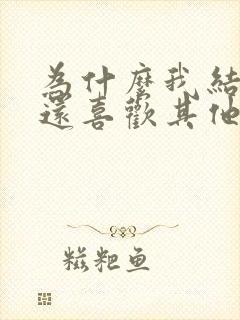 為什麼我結
還喜歡其他
糍粑鱼